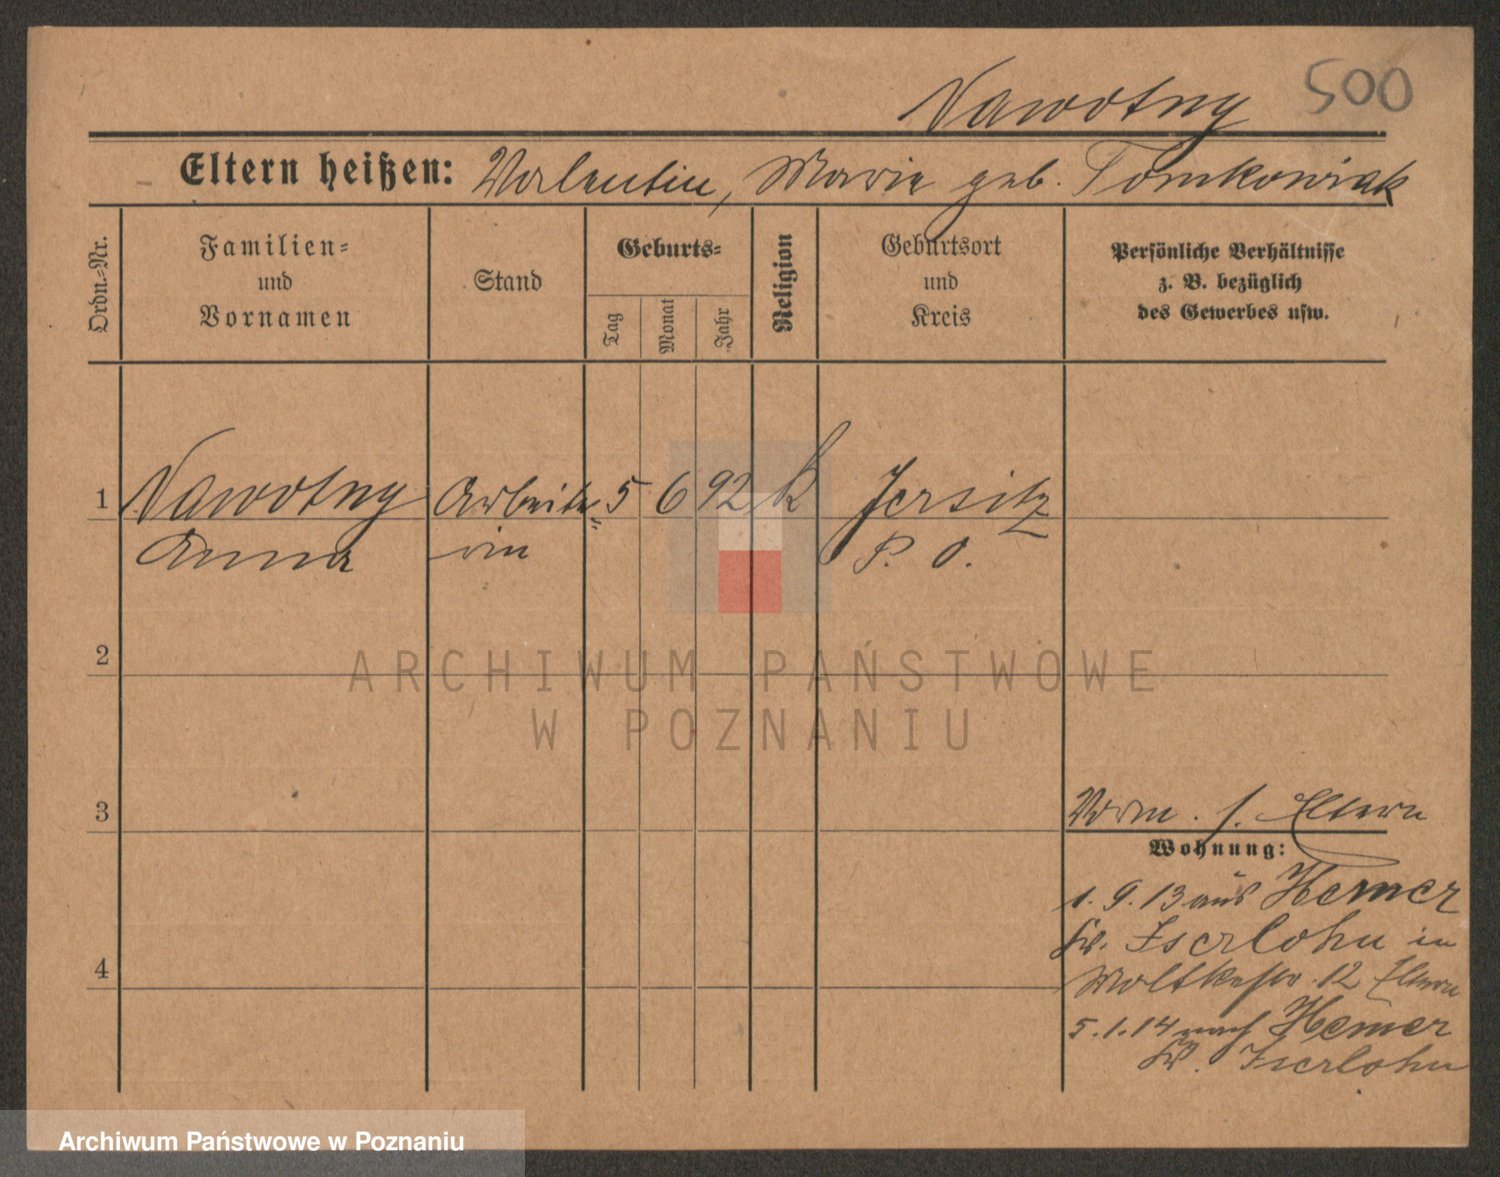 Nawotny 500
Eltern heißen: Valentin, Marie geb. Tomkowiak
Ordn.-Nr.
Familien-
und
Vornamen
Stand
Geburts-
Tag
Monat
Jahr
Religion
Geburtsort
und
Kreis
Persönliche Verhältnisse
z. B. bezüglich
des Gewerbes usw.
1 Nawotny Arbeite= 5 6 92 K Jersitz
Anna rin P. O.
2
3
Vorm. s. Eltern
Wohnung:
1. 9. 13 aus Hemer
Kr. Iserlohn in
4
Moltkestr. 12 Eltern
5. 1. 14 nach Hemer
Kr. Iserlohn
ARCHIWUM PAŃSTWOWE
W POZNANIU
Archiwum Państwowe w Poznaniu